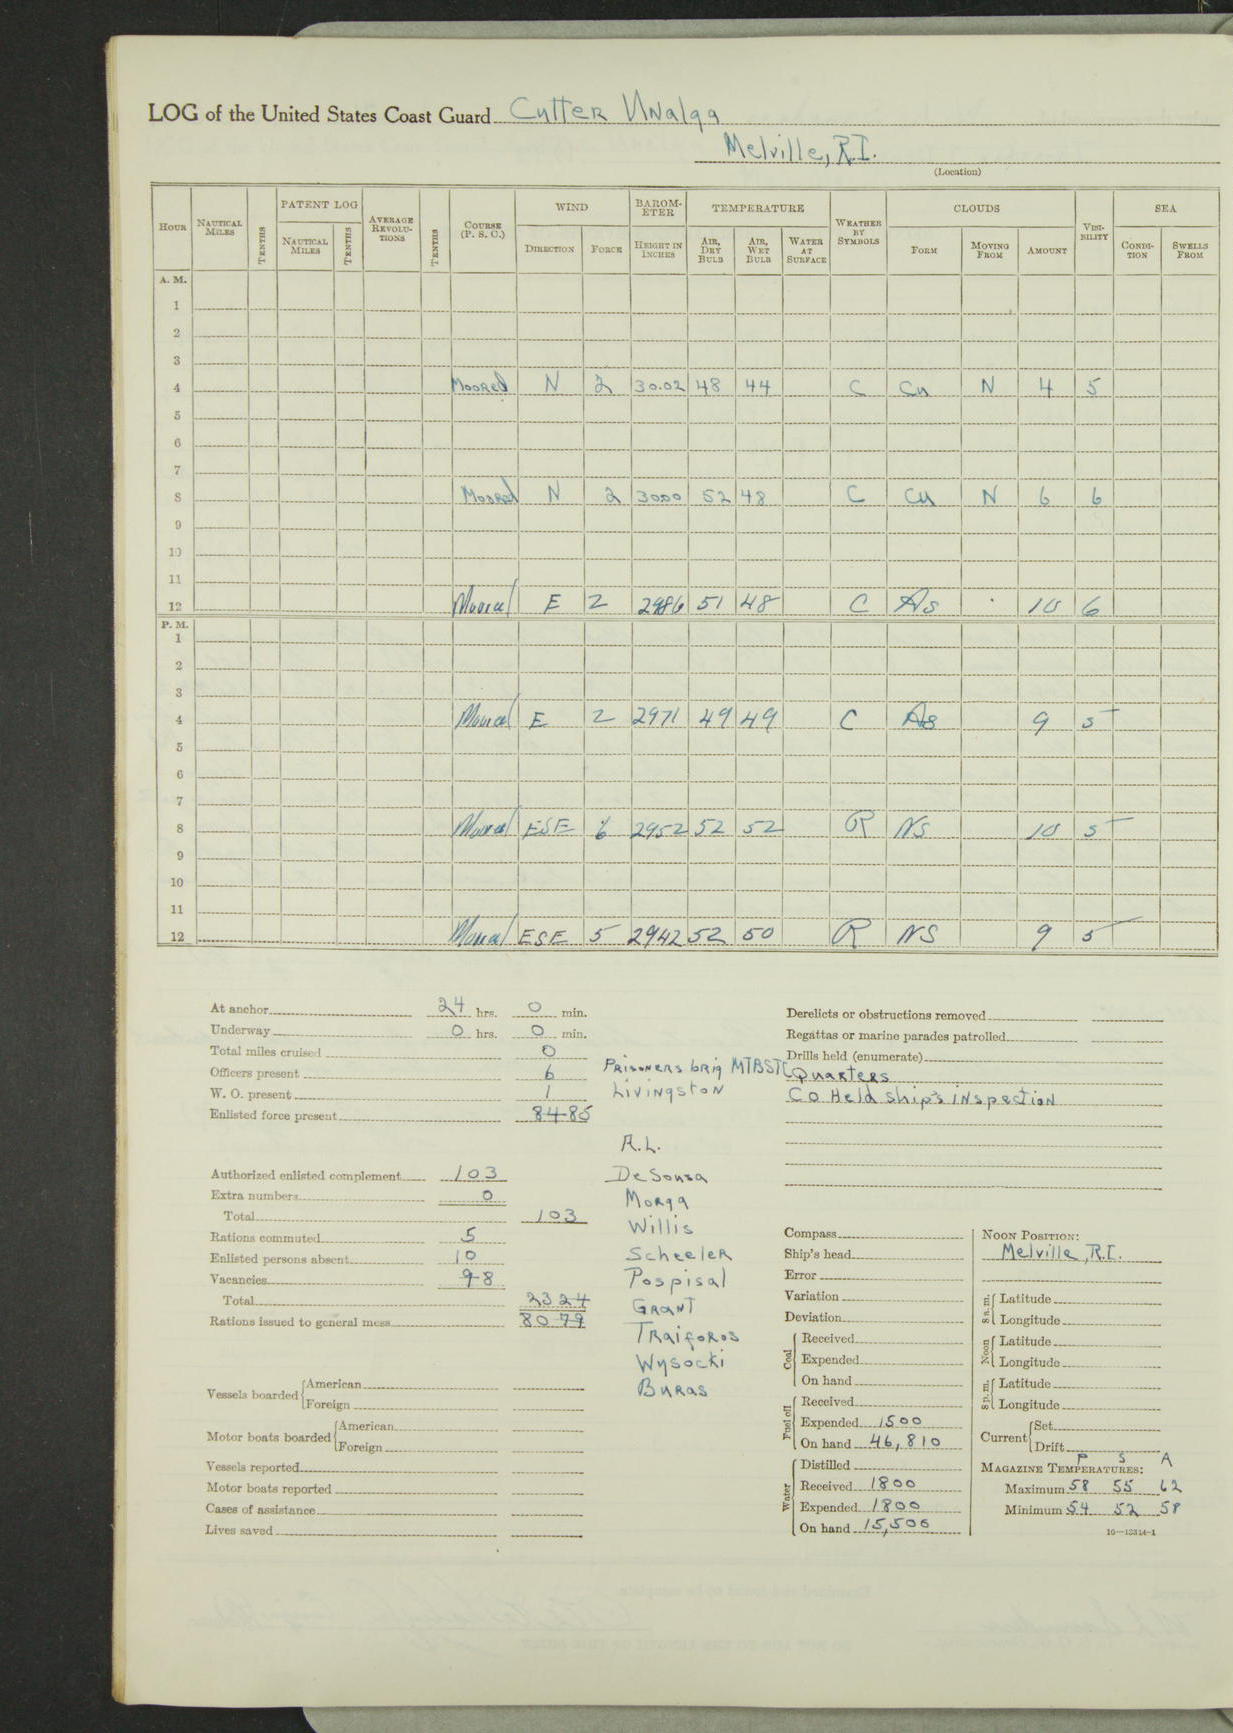 LOG of the United States Coast Guard Cutter Unalga
Melville, R.I.
(Location)
HOUR NAUTICAL MILES TENTHS PATENT LOG NAUTICAL MILES TENTHS AVERAGE REVOLUTIONS TENTHS COURSE (P. S. C.) WIND DIRECTION FORCE BAROMETER HEIGHT IN INCHES TEMPERATURE AIR, DRY BULB AIR, WET BULB WATER AT SURFACE WEATHER BY SYMBOLS CLOUDS FORM MOVING FROM AMOUNT VISIBILITY SEA CONDITION SWELLS FROM
A. M.
1
2
3
4 Moored N 2 30.02 48 44 C Cu N 4 5
5
6
7
8 Moored N 2 3000 52 48 C Cu N 6 6
9
10
11
12 Moored E 2 2986 51 48 C As 10 6
P. M.
1
2
3
4 Moored E 2 2971 49 49 C As 9 5
5
6
7
8 Moored ESE 6 2952 52 52 R NS 10 5
9
10
11
12 Moored ESE 5 2942 52 50 R NS 9 5
At anchor 24 hrs. 0 min.
Underway 0 hrs. 0 min.
Total miles cruised 0
Officers present 6
W. O. present 1
Enlisted force present 84 85
Authorized enlisted complement 103
Extra numbers 0
Total 103
Rations commuted 5
Enlisted persons absent 10
Vacancies 9 8
Total 23 24
Rations issued to general mess 80 79
Vessels boarded American
Foreign
Motor boats boarded American
Foreign
Vessels reported
Motor boats reported
Cases of assistance
Lives saved
Prisoners brig MTBSTC
Livingston
R.L.
DeSousa
Morga
Willis
Scheeler
Pospisal
Grant
Traiforos
Wysocki
Buras
Derelicts or obstructions removed
Regattas or marine parades patrolled
Drills held (enumerate)
Quarters
CO Held ship's inspection
Compass
Ship's head
Error
Variation
Deviation
Coal Received
Expended
On hand
Fuel oil Received
Expended 1500
On hand 46,810
Water Distilled
Received 1800
Expended 1800
On hand 15,500
NOON POSITION:
Melville, R.I.
8 a. m. Latitude
Longitude
Noon Latitude
Longitude
8 p. m. Latitude
Longitude
Current Set
Drift
P S A
MAGAZINE TEMPERATURES:
Maximum 58 55 62
Minimum 54 52 58
16—13314-1